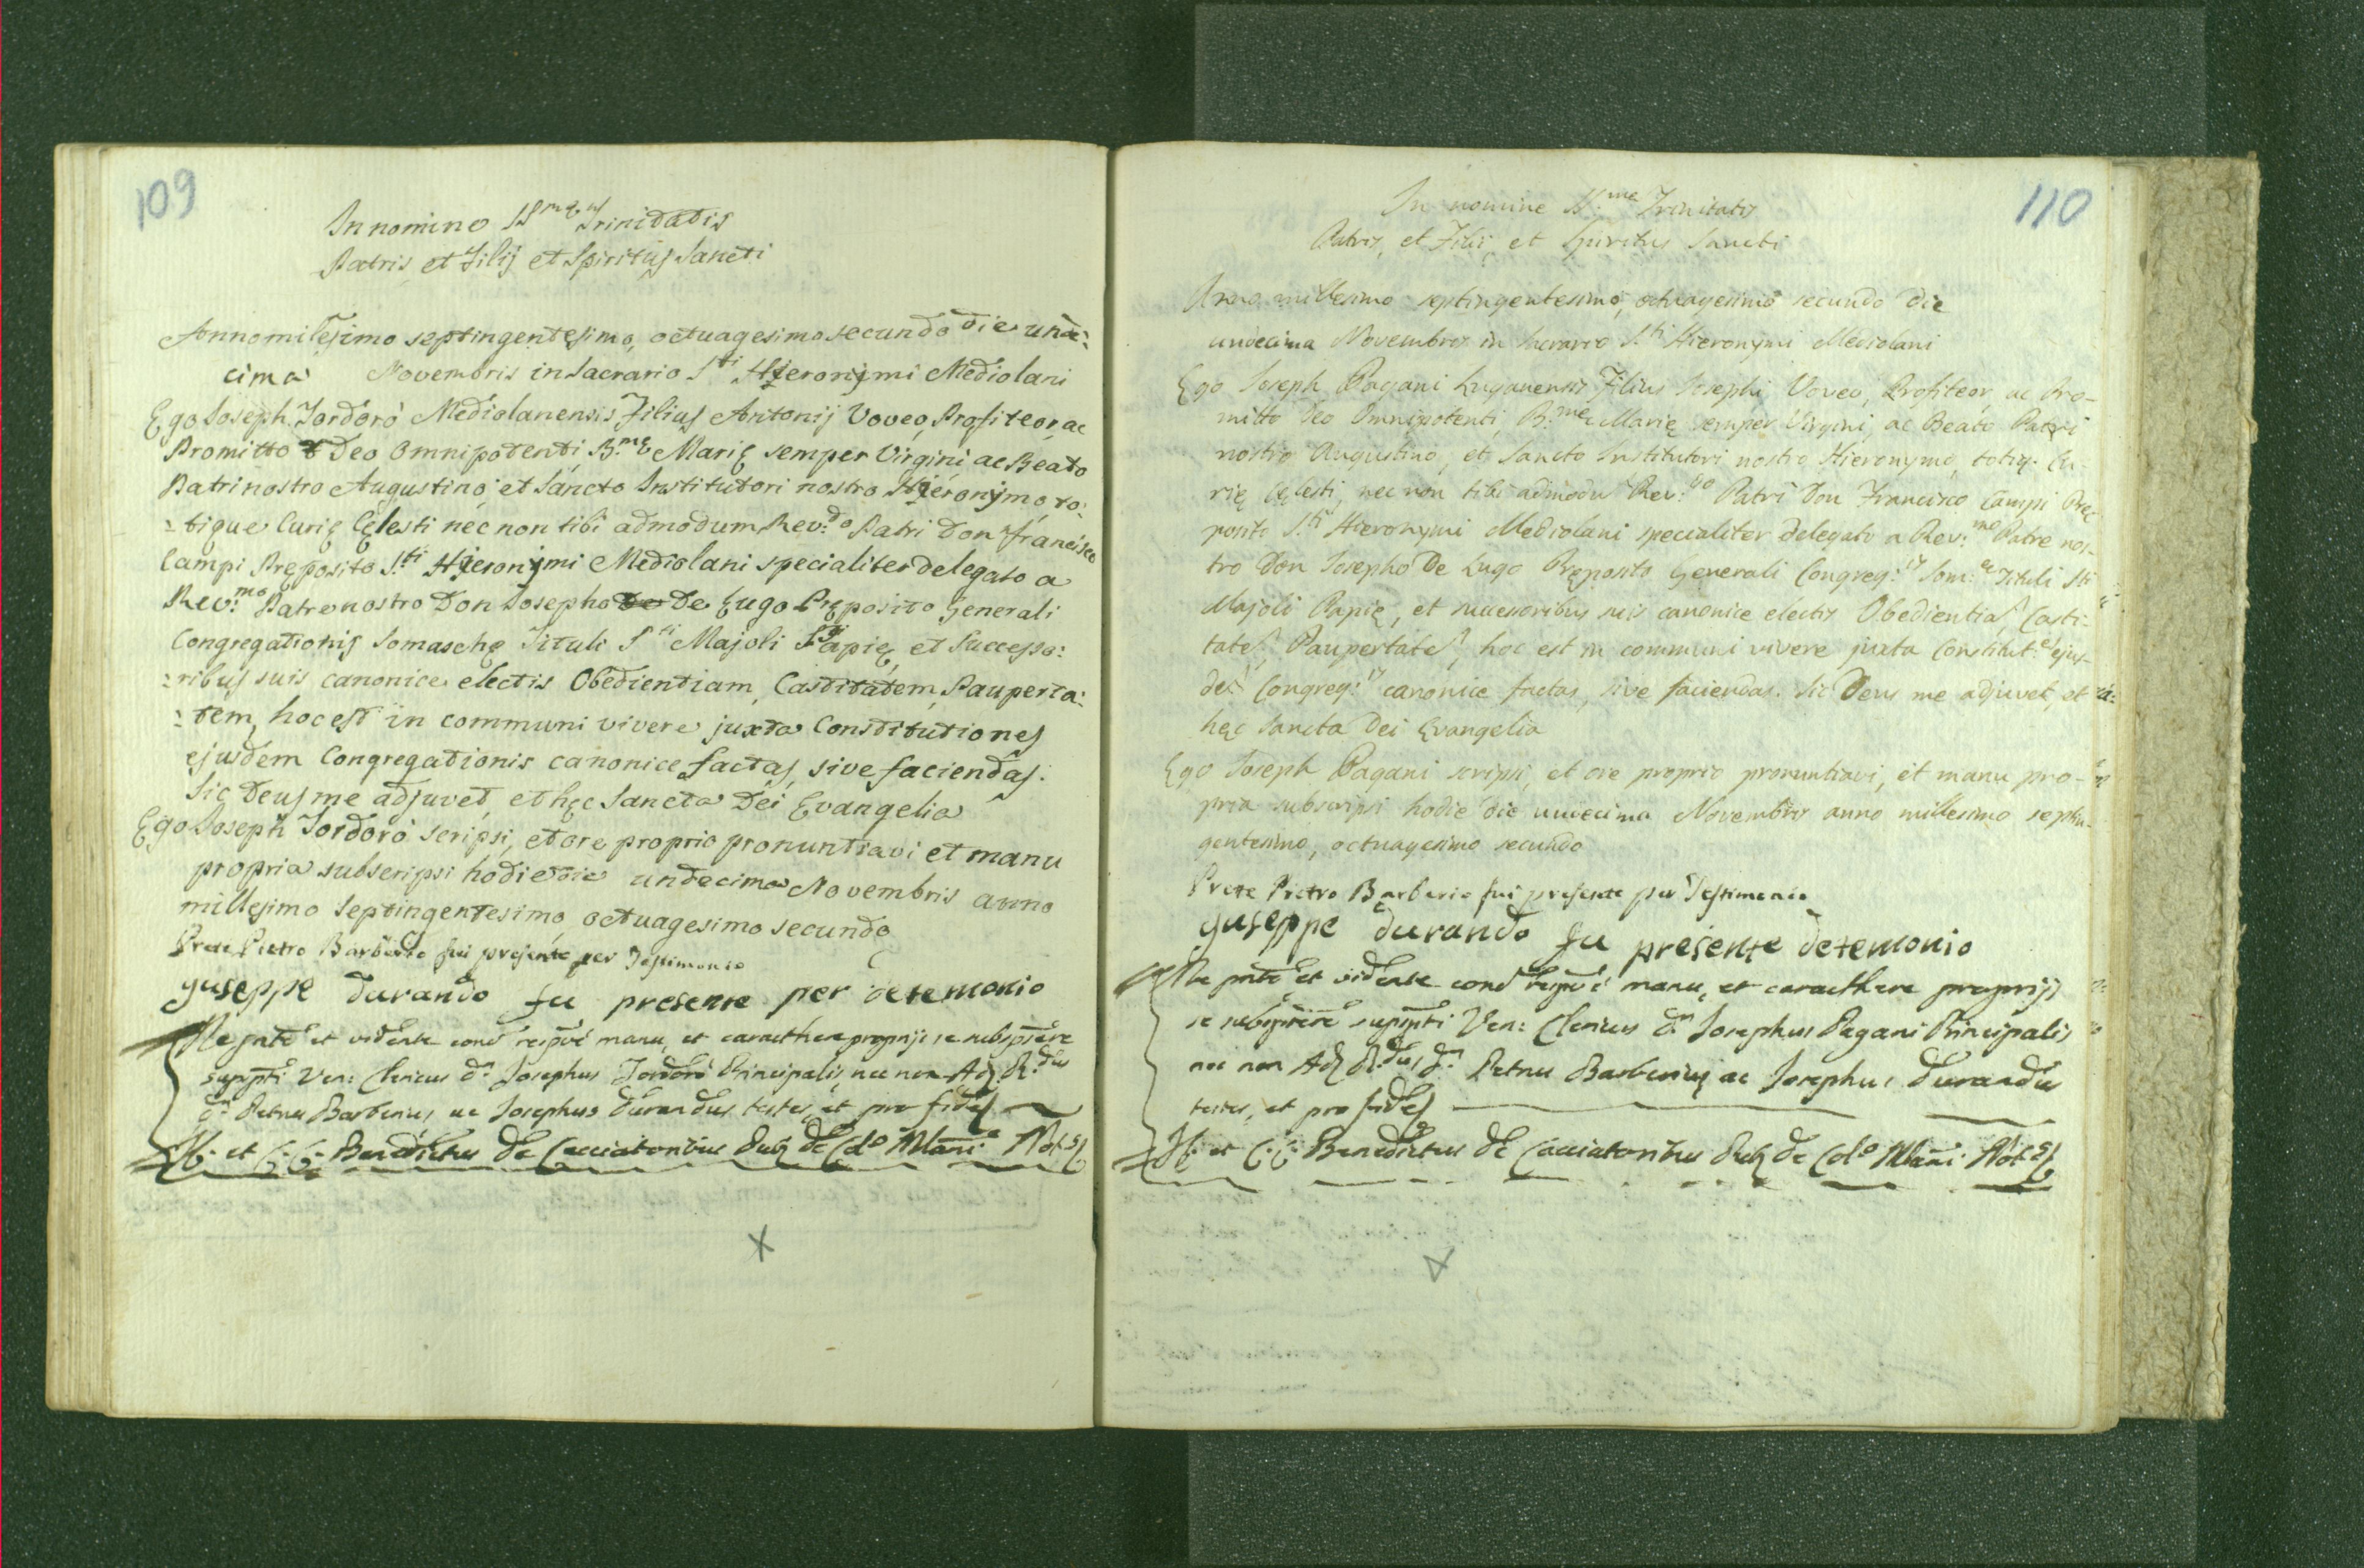 109
In nomine SS.mę Trinitatis
Patris, et Filij et Spiritus Sancti
Anno milesimo septingentesimo, octuagesimo secundo die unde:
cima Novembris in Sacrario S.ti Hieronijmi Mediolani
Ego Joseph Tordorò Mediolanensis Filius Antonij Voveo, Profiteor, ac
Promitto Deo Omnipotenti B.mę Marię semper Virgini ac Beato
Patri nostro Augustino, et Sancto Institutori nostro Hieronijmo, to:
:tique Curię Cęlesti nec non tibi admodum Rev:do Patri Don Francisco
Campi Pręposito S.ti Hieronijmi Mediolani specialiter delegato a
Rev:mo Patre nostro Don Josepho De Lugo Pręposito Generali
Congregationis Somaschę Tituli S.ti Majoli Papię, et Successo:
:ribus suis canonice electis Obedientiam, Castitatem, Pauperta:
:tem, hoc est in communi vivere juxta Constitutiones
ejusdem Congregationis canonice factas, sive faciendas.
Sic Deus me adjuvet, et hęc Sancta Dei Evangelia
Ego Joseph Tordorò scripsi, et ore proprio pronuntiavi et manu
propria subscripsi hodie die undecima Novembris anno
millesimo septingentesimo, octuagesimo secundo
Prete Pietro Barberio fui presente per Testimonio
guseppe durando fu presente per detemonio
Me pnte et vidente cond respvé manu, et caracthere proprijs se subspsere
suppti Ven: Clericus d.n Josephus Tordorò Principalis, nec non Adm R.dus
d.n Petrus Barberius, ac Josephus Durandus testes, et pro fide
Benedictus de Cacciatoribus Pub. de Coll.o Mlani Not.s
110
In nomine SS.me Trinitatis
Patris, et Filii, et Spiritus Sancti
Anno millesimo septingentesimo, octuagesimo secundo die
undecima Novembris in Sacrario S.ti Hieronymi Mediolani
Ego Joseph Pagani Luganensis Filius Josephi Voveo, Profiteor, ac Pro-
mitto Deo Omnipotenti, B.me Marię semper Virgini, ac Beato Patri
nostro Augustino, et Sancto Institutori nostro Hieronymo, totiq. Cu-
rię Cęlesti, nec non tibi admodu Rev:do Patri Don Francisco Campi Pręp
posito S.ti Hieronymi Mediolani specialiter delegato a Rev:mo Patre nos-
tro Don Josepho De Lugo Pręposito Generali Congreg:is Som:ae Tituli S.ti
Majoli Papię, et successoribus suis canonice electis Obedientia, Casti-
tate, Paupertate, hoc est in communi vivere juxta Constitut:es ejus-
de Congreg:is canonice factas, sive faciendas. Sic Deus me adjuvet, et
hęc Sancta Dei Evangelia
Ego Joseph Pagani scripsi, et ore proprio pronuntiavi, et manu pro-
pria subscripsi hodie die undecima Novembris anno millesimo septin-
gentesimo, octuagesimo secundo
Prete Pietro Barberio fui presente per Testimonio
guseppe durando fu presente detemonio
Me pnte et vidente cond respvé manu, et caracthere proprijs
se subspsere suppti Ven: Clericus d.n Josephus Pagani Principalis
nec non Adm R.dus d.n Petrus Barberius ac Josephus Durandus
testes, et pro fide
Benedictus de Cacciatoribus Pub. de Coll.o Mlani Not.s